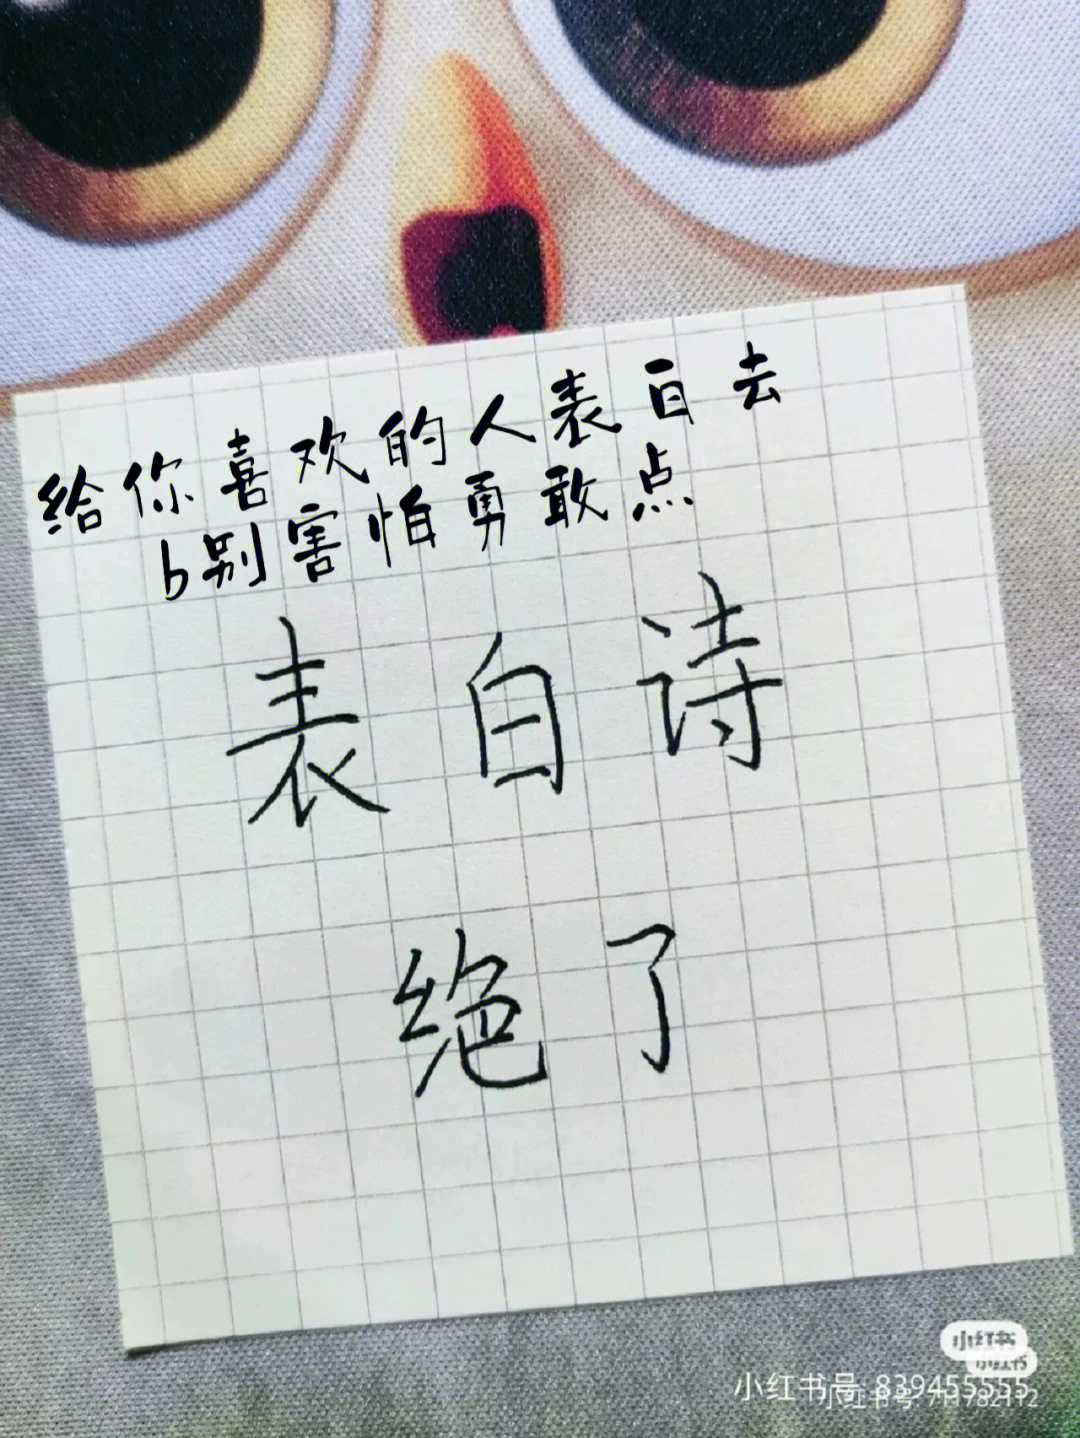 给你喜欢的人表白去
b别害怕勇敢点
表白诗
绝了
小红书
小红书
小红书号 839455555
小红书号 711782112